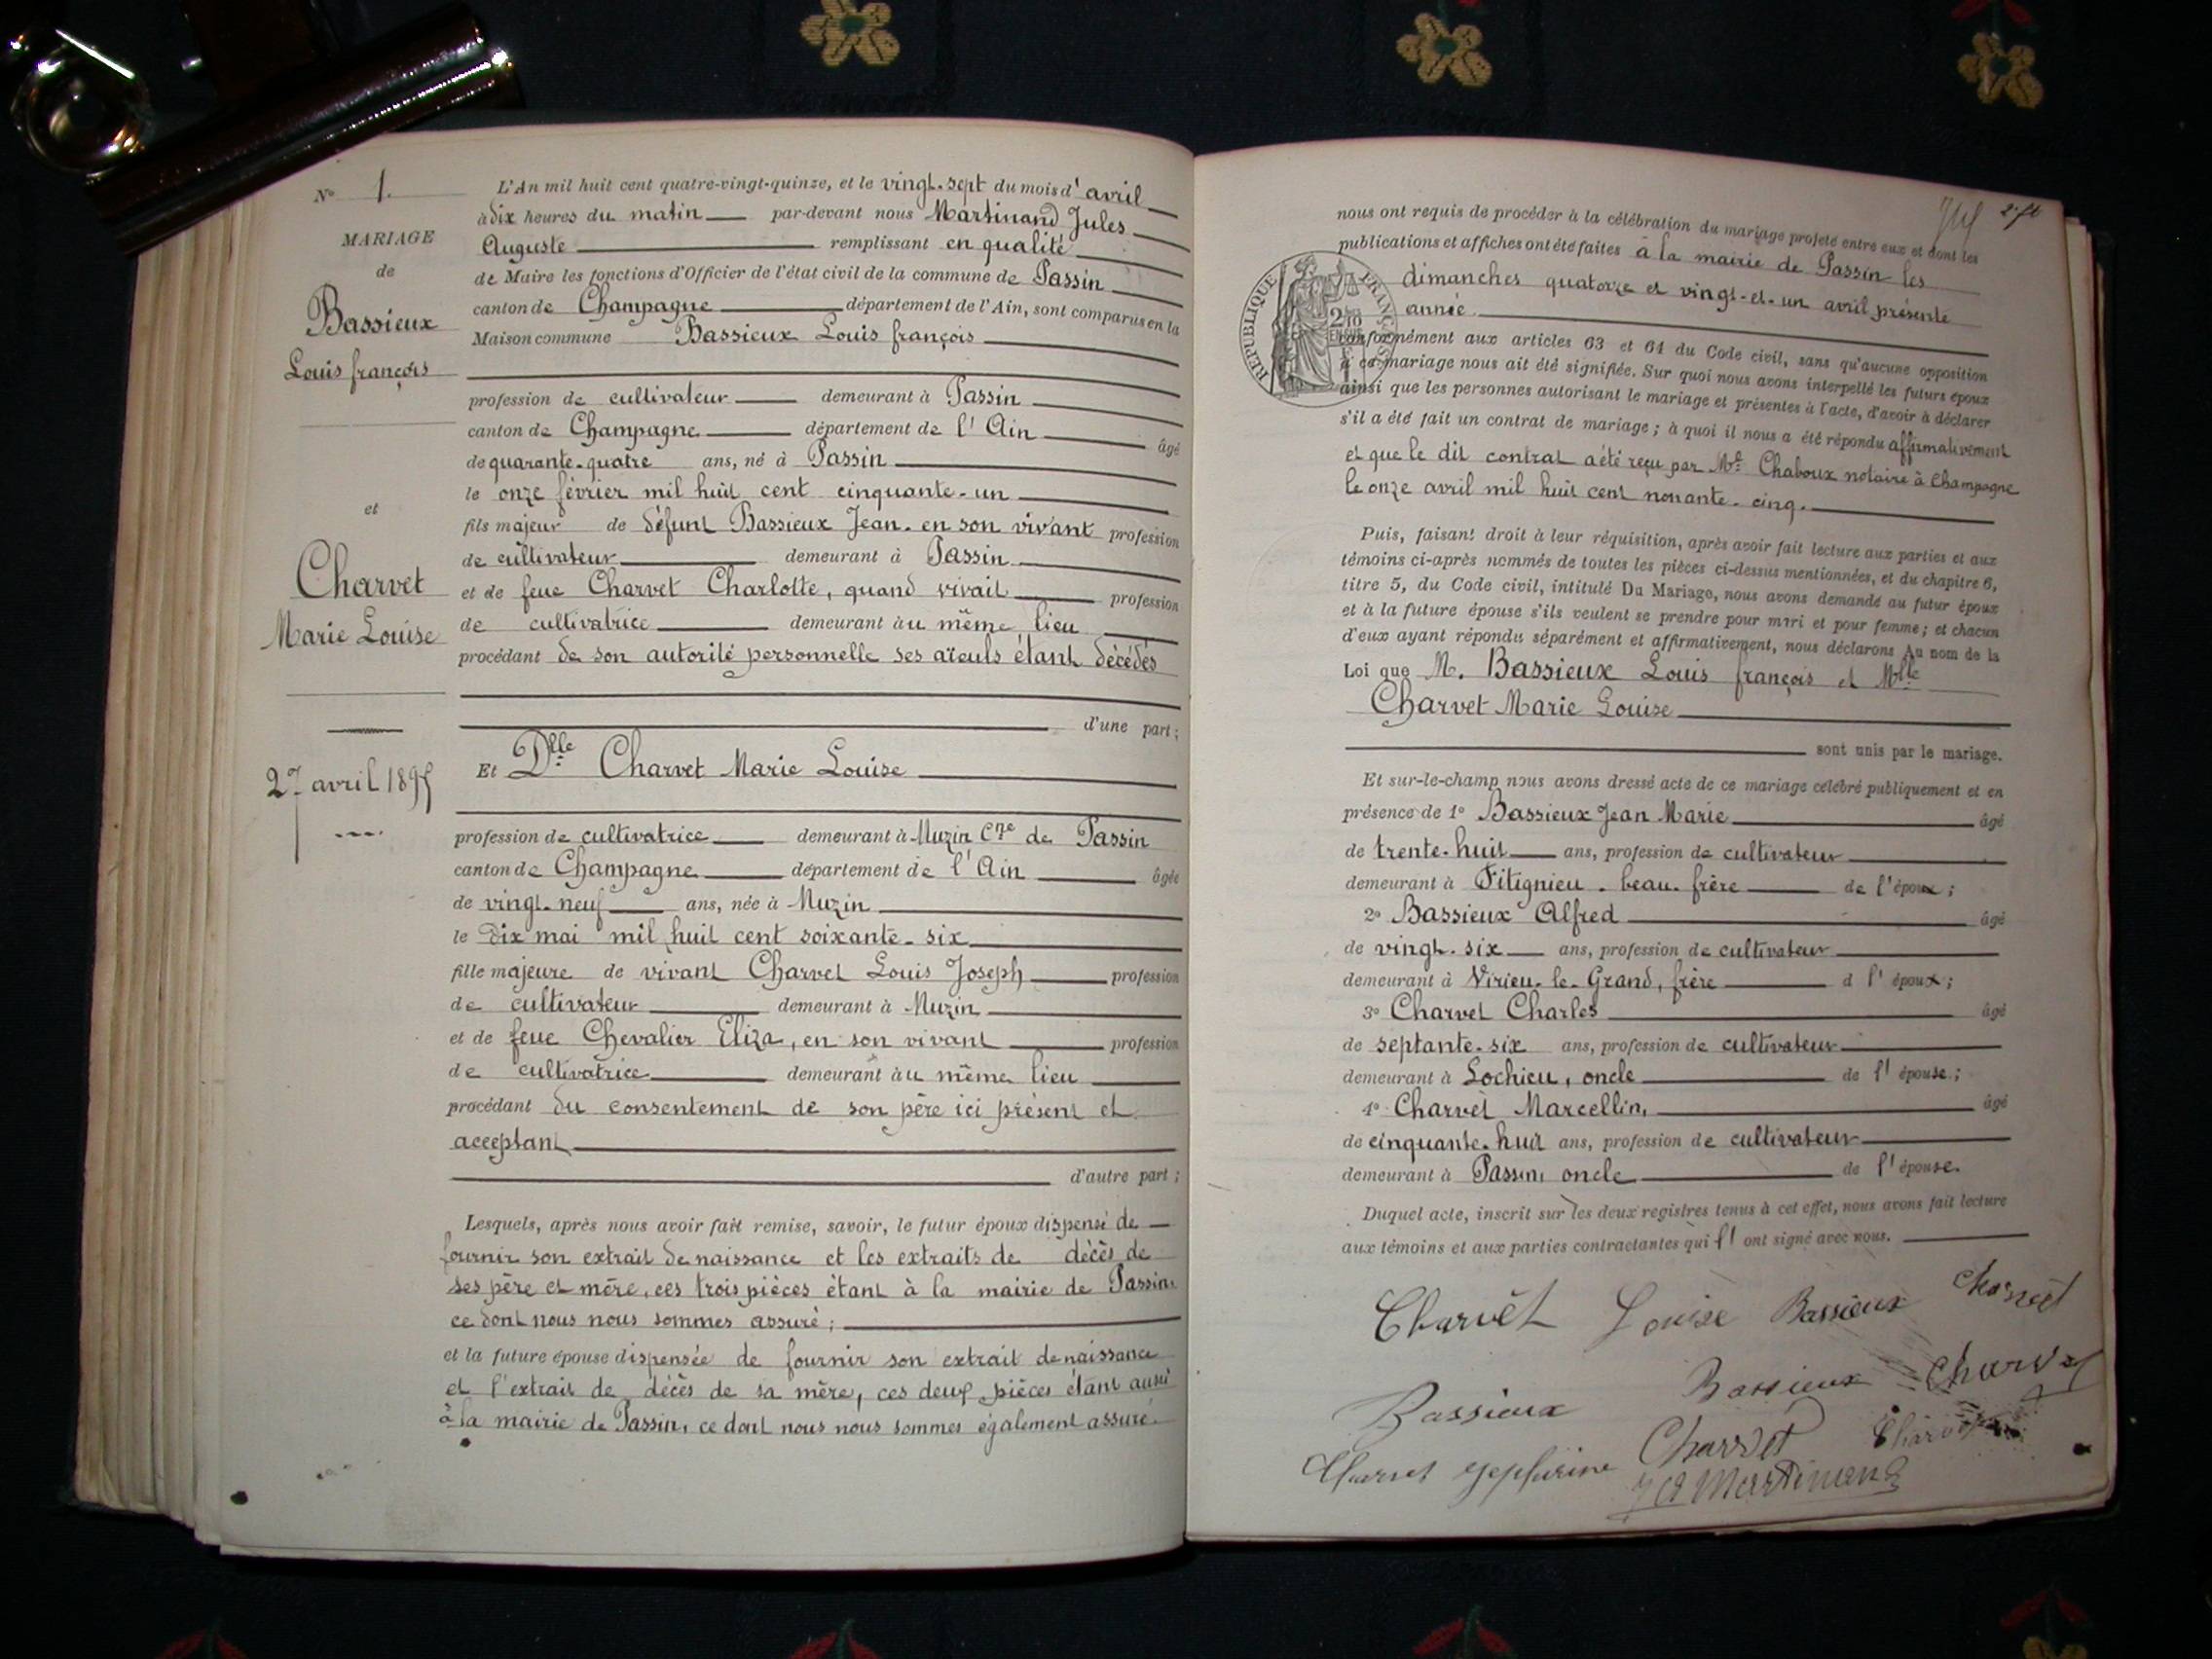 N° 1.
MARIAGE
de
Bassieux
Louis françois
et
Charvet
Marie Louise
27 avril 1895
L'An mil huit cent quatre-vingt-quinze, et le vingt-sept du mois d'avril
à dix heures du matin par-devant nous Martinand Jules
Auguste remplissant en qualité
de Maire les fonctions d'Officier de l'état civil de la commune de Passin
canton de Champagne département de l'Ain, sont comparus en la
Maison commune Bassieux Louis françois
profession de cultivateur demeurant à Passin
canton de Champagne département de l'Ain âgé
de quarante-quatre ans, né à Passin
le onze février mil huit cent cinquante-un
fils majeur de défunt Bassieux Jean. en son vivant profession
de cultivateur demeurant à Passin
et de feue Charvet Charlotte, quand vivait profession
de cultivatrice demeurant àu même lieu
procédant de son autorité personnelle ses aïeuls étant décédés
d'une part;
Et Dlle Charvet Marie Louise
profession de cultivatrice demeurant à Muzin Cne de Passin
canton de Champagne département de l'Ain âgée
de vingt-neuf ans, née à Muzin
le dix mai mil huit cent soixante-six
fille majeure de vivant Charvet Louis Joseph profession
de cultivateur demeurant à Muzin
et de feue Chevalier Eliza, en son vivant profession
de cultivatrice demeurant àu même lieu
procédant du consentement de son père ici présent et
acceptant
d'autre part;
Lesquels, après nous avoir fait remise, savoir, le futur époux dispensé de
fournir son extrait de naissance et les extraits de décès de
ses père et mère, ces trois pièces étant à la mairie de Passin.
ce dont nous nous sommes assuré;
et la future épouse dispensée de fournir son extrait de naissance
et l'extrait de décès de sa mère, ces deux pièces étant aussi
à la mairie de Passin, ce dont nous nous sommes également assuré.
nous ont requis de procéder à la célébration du mariage projeté entre eux et dont les
publications et affiches ont été faites à la mairie de Passin les
dimanches quatorze et vingt-et-un avril présente
année
RÉPUBLIQUE FRANÇAISE
conformément aux articles 63 et 64 du Code civil, sans qu'aucune opposition
à ce mariage nous ait été signifiée. Sur quoi nous avons interpellé les futurs époux
ainsi que les personnes autorisant le mariage et présentes à l'acte, d'avoir à déclarer
s'il a été fait un contrat de mariage; à quoi il nous a été répondu affirmativement
et que le dit contrat a été reçu par Me Chaboux notaire à Champagne
le onze avril mil huit cent nonante-cinq.
Puis, faisant droit à leur réquisition, après avoir fait lecture aux parties et aux
témoins ci-après nommés de toutes les pièces ci-dessus mentionnées, et du chapitre 6,
titre 5, du Code civil, intitulé Du Mariage, nous avons demandé au futur époux
et à la future épouse s'ils veulent se prendre pour mari et pour femme; et chacun
d'eux ayant répondu séparément et affirmativement, nous déclarons Au nom de la
Loi que M. Bassieux Louis françois et Mlle
Charvet Marie Louise
sont unis par le mariage.
Et sur-le-champ nous avons dressé acte de ce mariage célébré publiquement et en
présence de 1° Bassieux Jean Marie âgé
de trente-huit ans, profession de cultivateur
demeurant à Fitignieu. beau-frère de l'époux;
2° Bassieux Alfred âgé
de vingt-six ans, profession de cultivateur
demeurant à Virieu-le-Grand, frère d l'époux;
3° Charvet Charles âgé
de septante-six ans, profession de cultivateur
demeurant à Lochieu, oncle de l'épouse;
4° Charvet Marcellin, âgé
de cinquante-huit ans, profession de cultivateur
demeurant à Passin, oncle de l'épouse.
Duquel acte, inscrit sur les deux registres tenus à cet effet, nous avons fait lecture
aux témoins et aux parties contractantes qui l'ont signé avec nous.
Charvet Louise Bassieux Charvet
Bassieux Bassieux Charvet
Charvet Charvet
Martinand